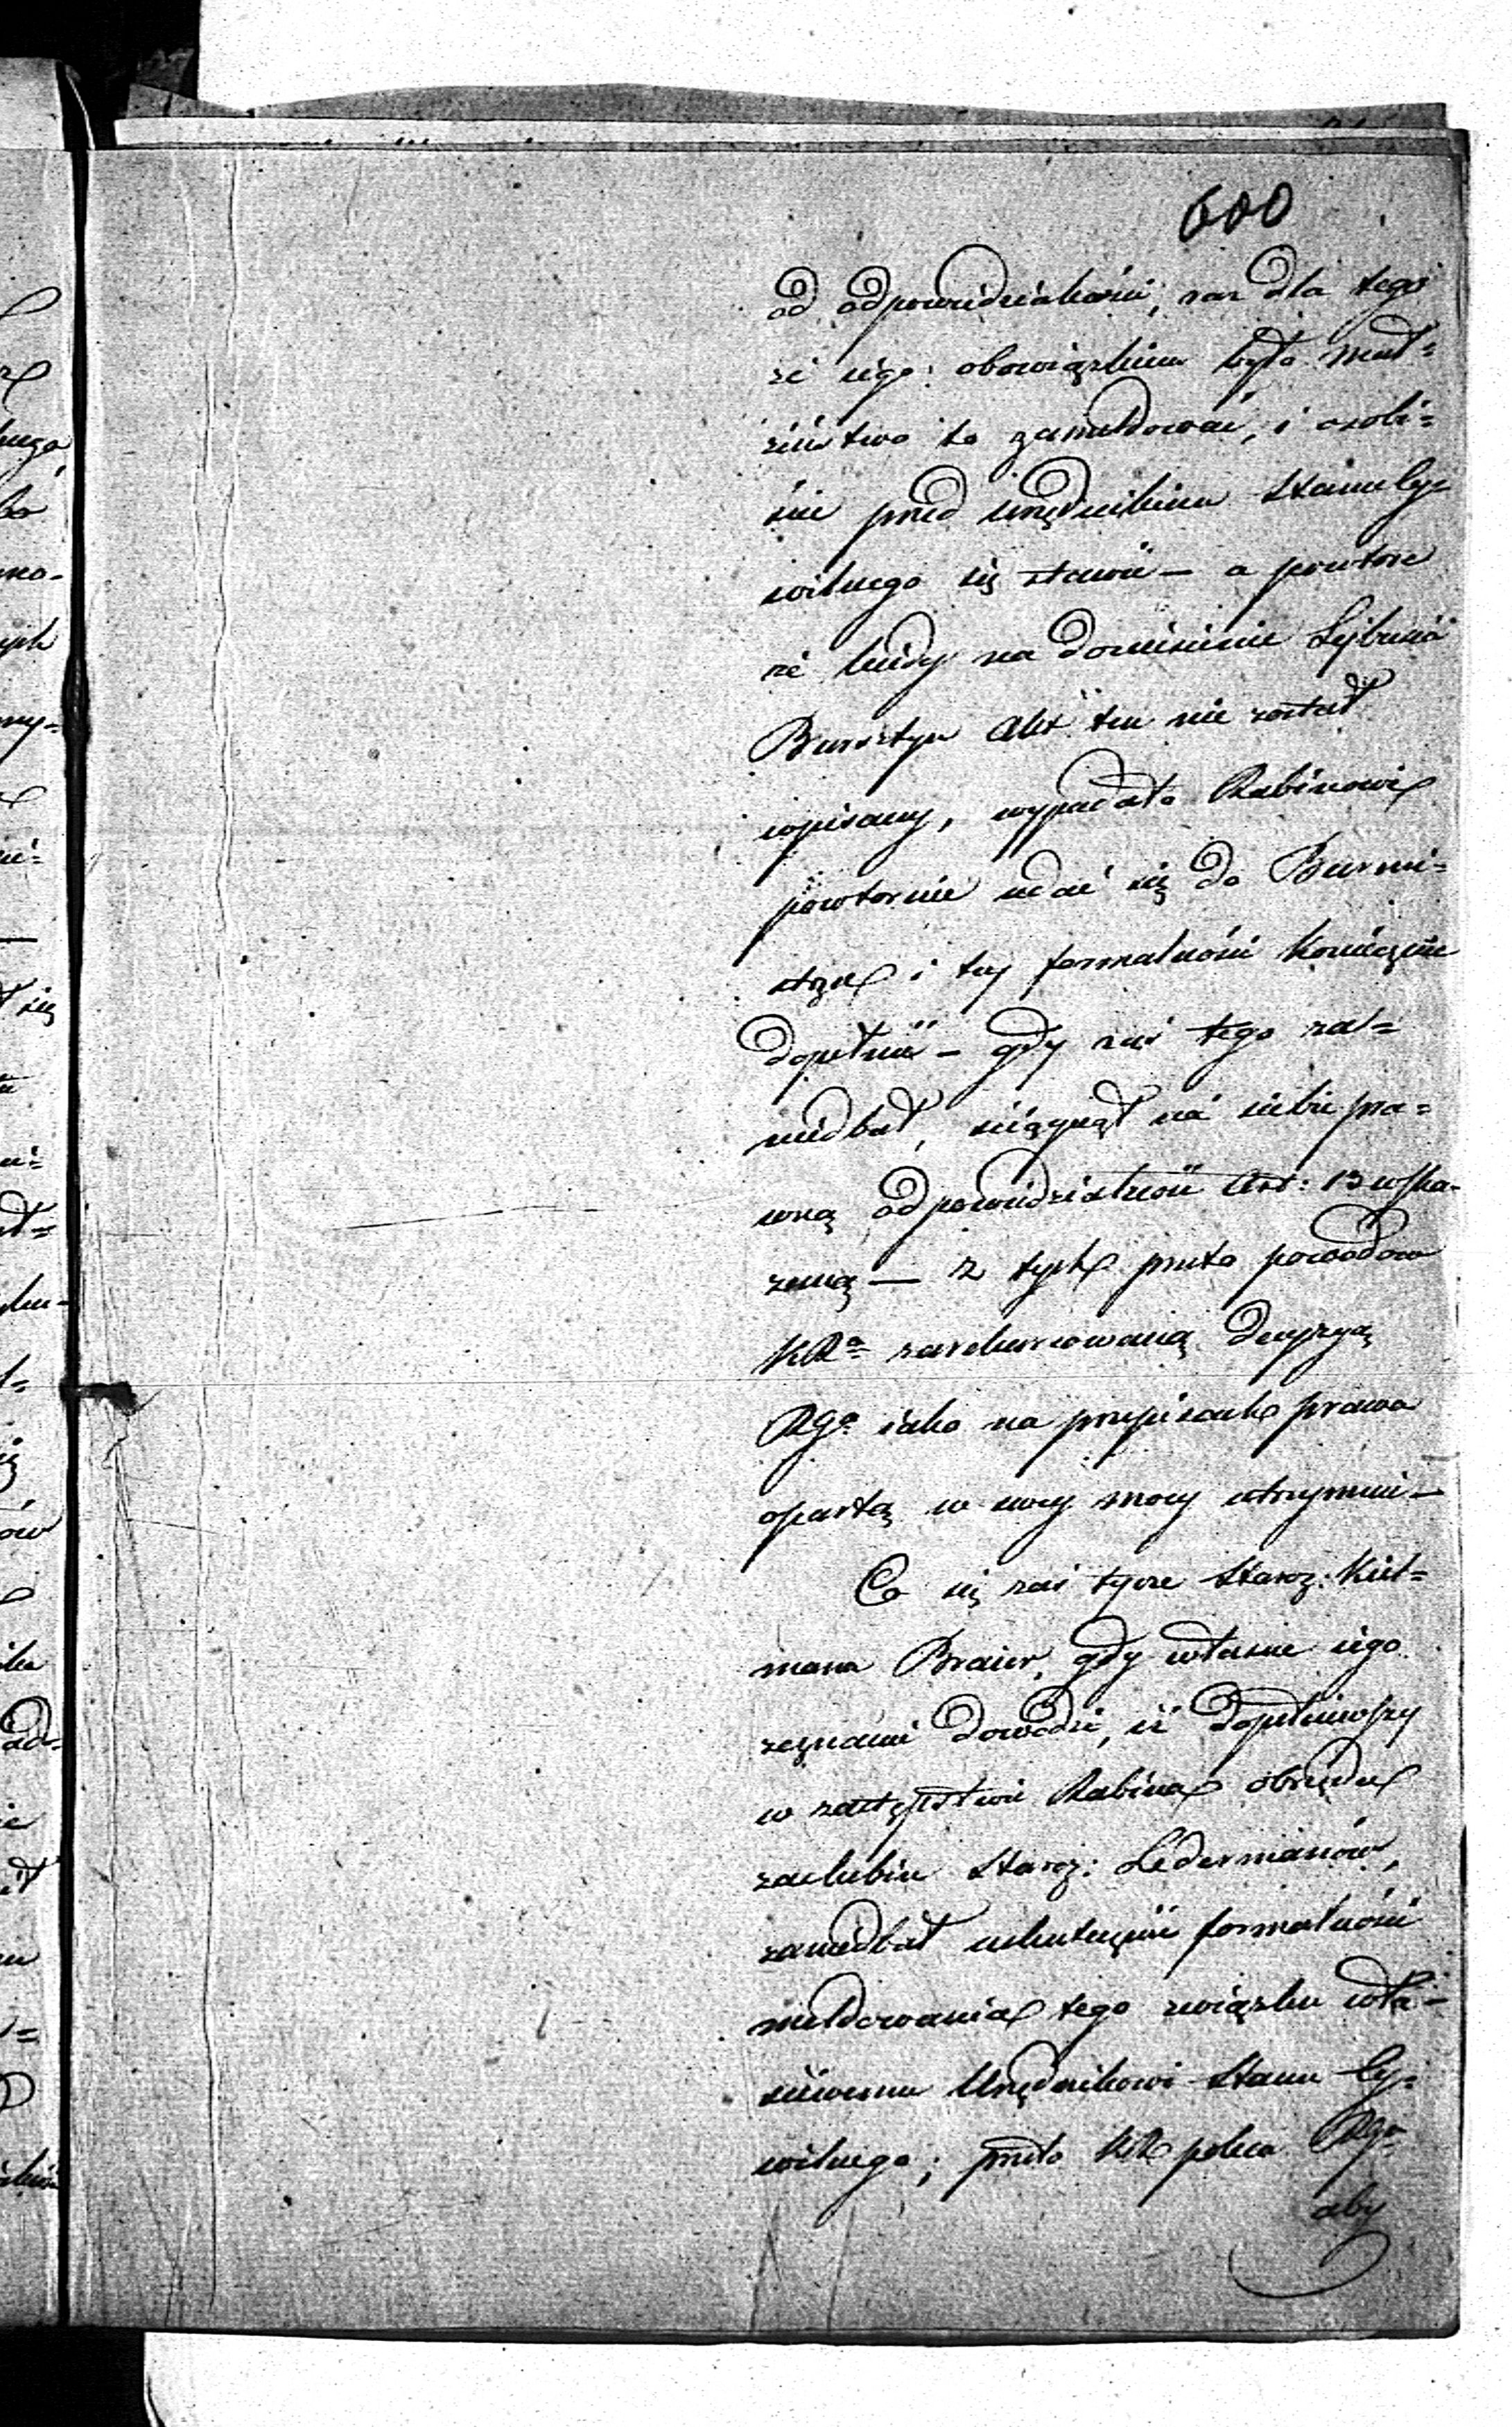 600
od odpowiedzialności, raz dla tego
że iego obowiązkiem było mał=
żeństwo to zameldować, i osobi=
ście przed Urzędnikiem Stanu Cy=
wilnego się stawić — a powtore
że kiedy na doniesienie Lejbusia
Bursztyn Akt ten nie został
wpisany, wypadało Rabinowi
powtornie udać się do Burmi=
strza i tey formalności koniecznie
dopełnić — gdy zaś tego za=
niedbał, ściągnął na siebie pra=
wną odpowiedzialność Art: 13 wska-
zaną — z tych przeto powodow
KRa zarekursowaną Decyzyą
RGo iako na przepisach prawa
opartą w swey mocy utrzymuie —
Co się zaś tycze Staroz: Kiel=
mana Braier, gdy własne iego
zeznanie dowodzi, iż dopełniwszy
w zastępstwie Rabina obrzędu
zaślubin Staroz: Ledermanów,
zaniedbał uskutecznić formalności
meldowania tego związku wła=
ściwemu Urzędnikowi Stanu Cy=
wilnego; przeto KR poleca RGo
aby